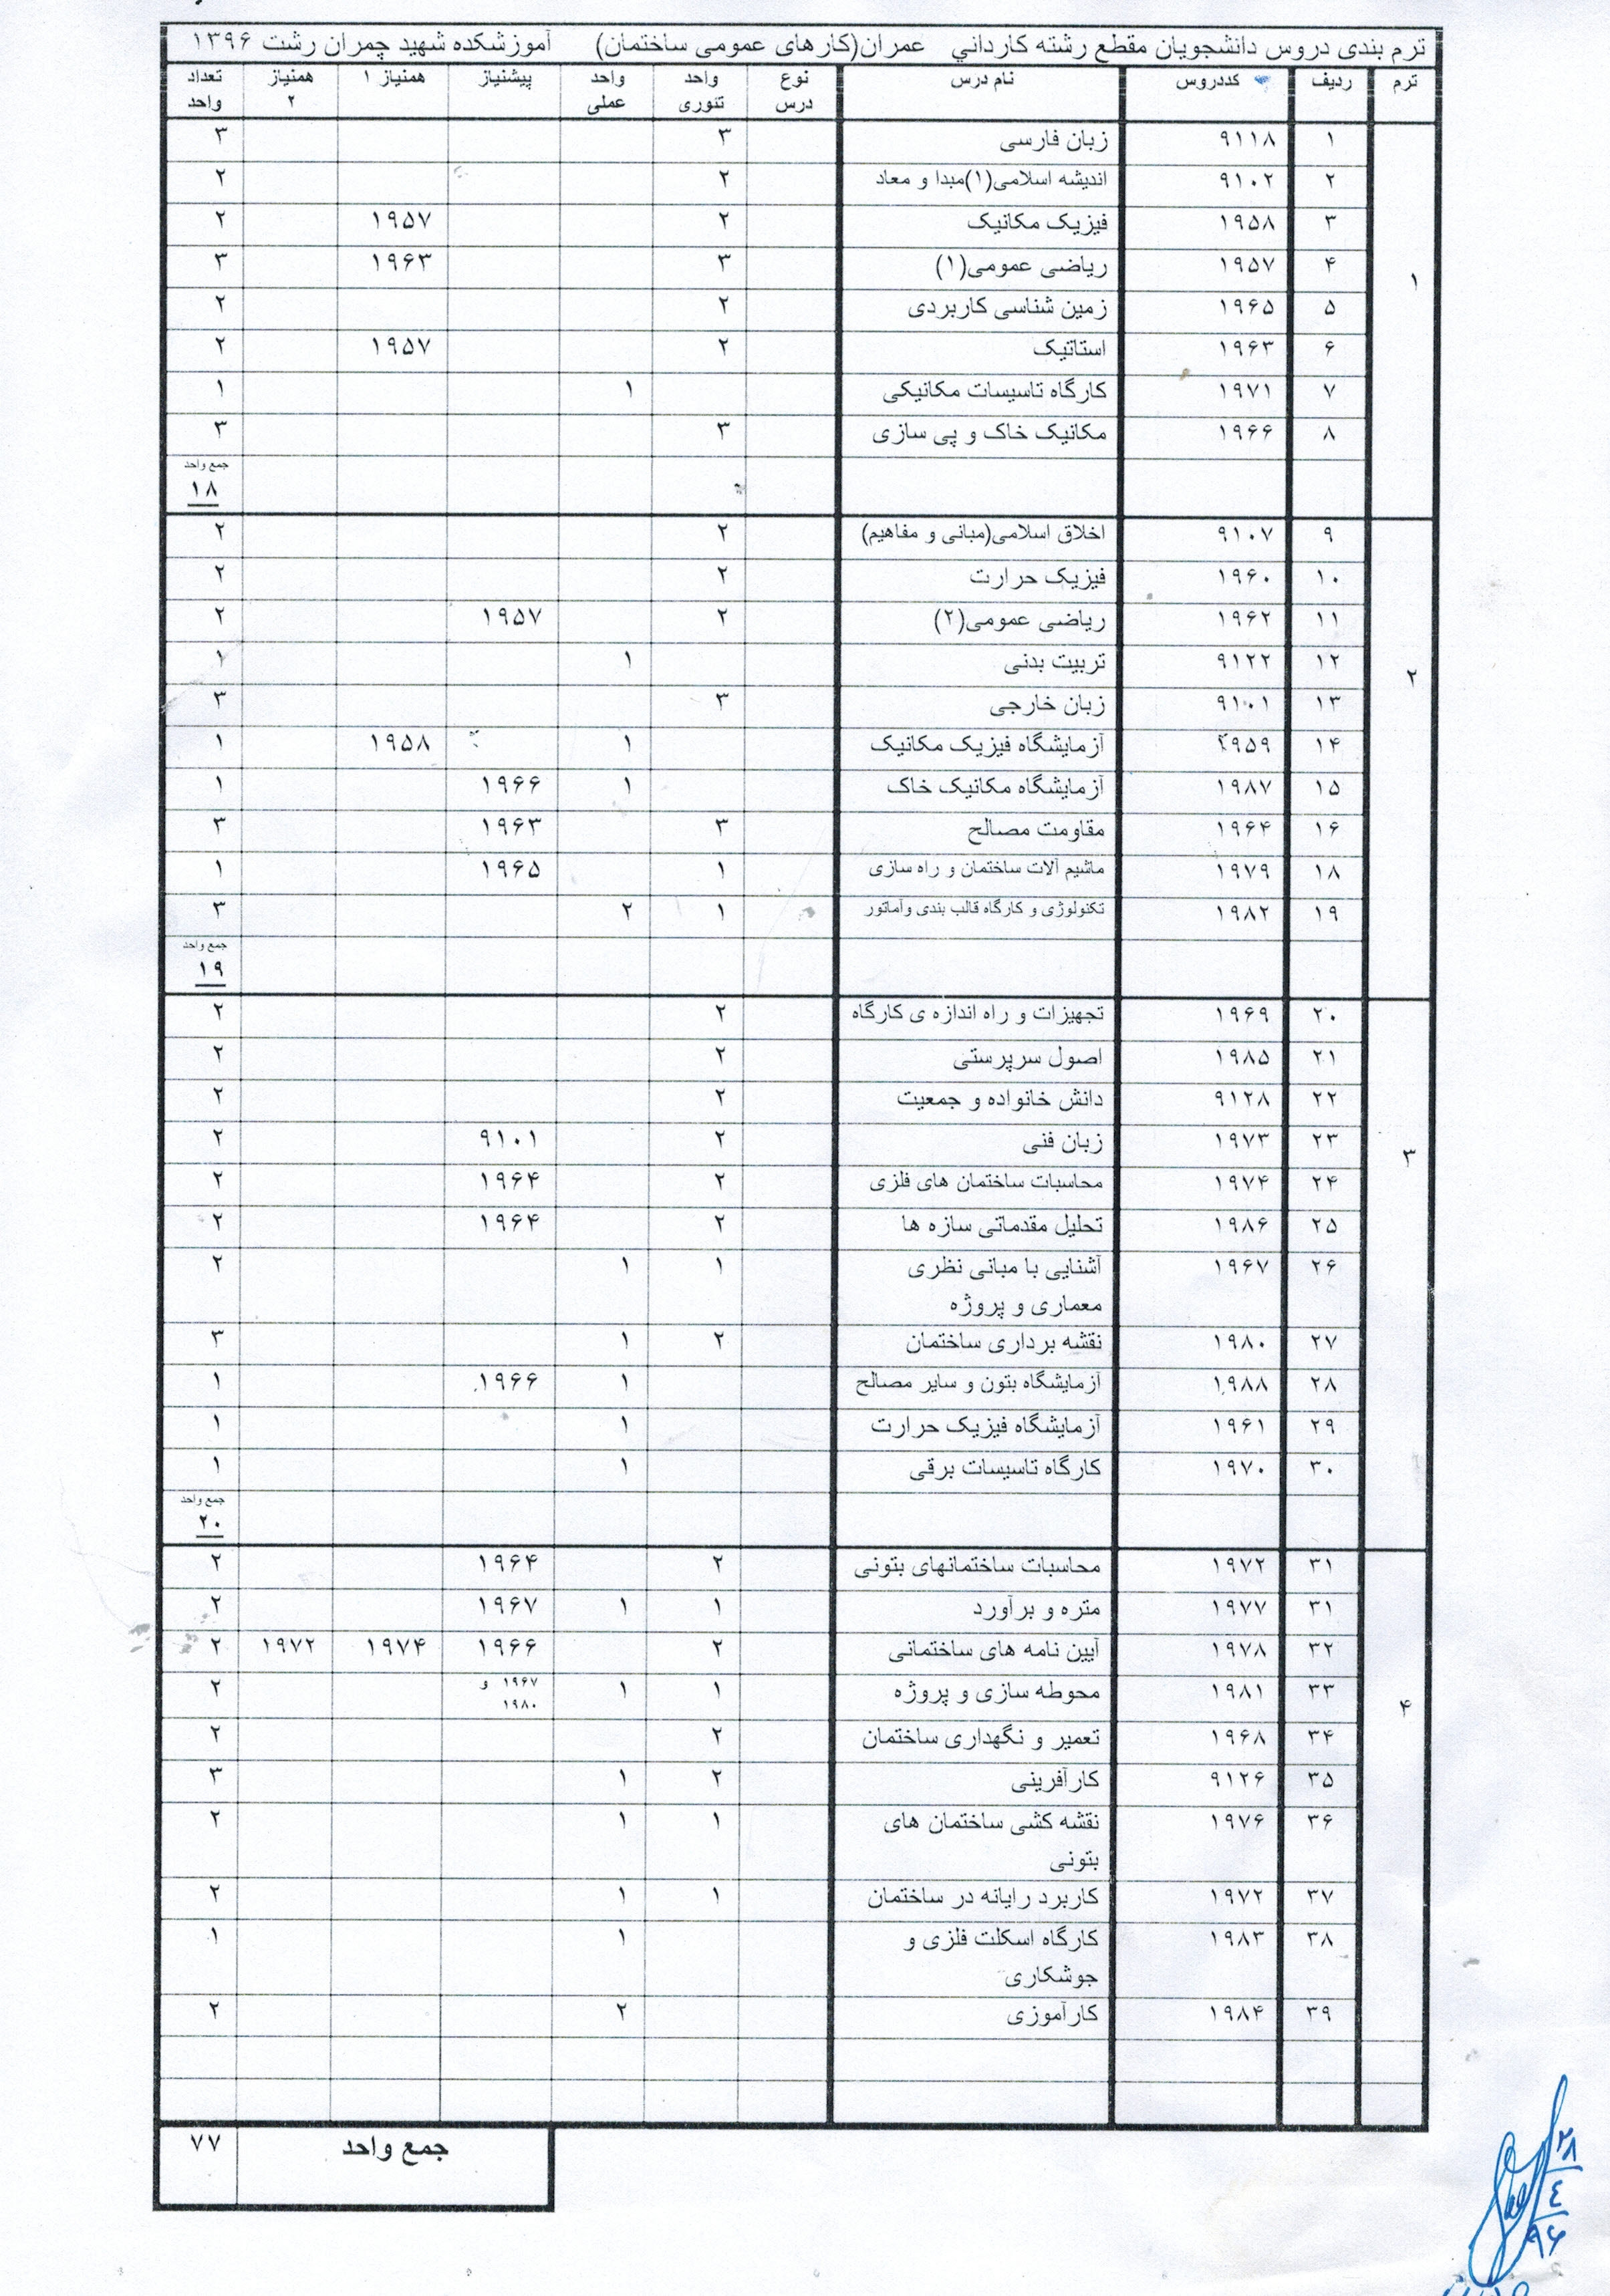 ترم بندی دروس دانشجویان مقطع رشته کارداني عمران(کارهای عمومی ساختمان) آموزشکده شهید چمران رشت ۱۳۹۶
ترم ردیف کددروس نام درس نوع درس واحد تئوری واحد عملی پیشنیاز همنیاز ۱ همنیاز ۲ تعداد واحد
۱
۱ ۹۱۱۸ زبان فارسی ۳ ۳
۲ ۹۱۰۲ اندیشه اسلامی(۱)مبدا و معاد ۲ ۲
۳ ۱۹۵۸ فیزیک مکانیک ۲ ۱۹۵۷ ۲
۴ ۱۹۵۷ ریاضی عمومی(۱) ۳ ۱۹۶۳ ۳
۵ ۱۹۶۵ زمین شناسی کاربردی ۲ ۲
۶ ۱۹۶۳ استاتیک ۲ ۱۹۵۷ ۲
۷ ۱۹۷۱ کارگاه تاسیسات مکانیکی ۱ ۱
۸ ۱۹۶۶ مکانیک خاک و پی سازی ۳ ۳
جمع واحد
۱۸
۲
۹ ۹۱۰۷ اخلاق اسلامی(مبانی و مفاهیم) ۲ ۲
۱۰ ۱۹۶۰ فیزیک حرارت ۲ ۲
۱۱ ۱۹۶۲ ریاضی عمومی(۲) ۲ ۱۹۵۷ ۲
۱۲ ۹۱۲۲ تربیت بدنی ۱ ۱
۱۳ ۹۱۰۱ زبان خارجی ۳ ۳
۱۴ ۱۹۵۹ آزمایشگاه فیزیک مکانیک ۱ ۱۹۵۸ ۱
۱۵ ۱۹۸۷ آزمایشگاه مکانیک خاک ۱ ۱۹۶۶ ۱
۱۶ ۱۹۶۴ مقاومت مصالح ۳ ۱۹۶۳ ۳
۱۸ ۱۹۷۹ ماشیم آلات ساختمان و راه سازی ۱ ۱۹۶۵ ۱
۱۹ ۱۹۸۲ تکنولوژی و کارگاه قالب بندی وآماتور ۱ ۲ ۳
جمع واحد
۱۹
۳
۲۰ ۱۹۶۹ تجهیزات و راه اندازه ی کارگاه ۲ ۲
۲۱ ۱۹۸۵ اصول سرپرستی ۲ ۲
۲۲ ۹۱۲۸ دانش خانواده و جمعیت ۲ ۲
۲۳ ۱۹۷۳ زبان فنی ۲ ۹۱۰۱ ۲
۲۴ ۱۹۷۴ محاسبات ساختمان های فلزی ۲ ۱۹۶۴ ۲
۲۵ ۱۹۸۶ تحلیل مقدماتی سازه ها ۲ ۱۹۶۴ ۲
۲۶ ۱۹۶۷ آشنایی با مبانی نظری ۱ ۱ ۲
معماری و پروژه
۲۷ ۱۹۸۰ نقشه برداری ساختمان ۲ ۱ ۳
۲۸ ۱۹۸۸ آزمایشگاه بتون و سایر مصالح ۱ ۱۹۶۶ ۱
۲۹ ۱۹۶۱ آزمایشگاه فیزیک حرارت ۱ ۱
۳۰ ۱۹۷۰ کارگاه تاسیسات برقی ۱ ۱
جمع واحد
۲۰
۴
۳۱ ۱۹۷۲ محاسبات ساختمانهای بتونی ۲ ۱۹۶۴ ۲
۳۱ ۱۹۷۷ متره و برآورد ۱ ۱ ۱۹۶۷ ۲
۳۲ ۱۹۷۸ آیین نامه های ساختمانی ۲ ۱۹۶۶ ۱۹۷۴ ۱۹۷۲ ۲
۳۳ ۱۹۸۱ محوطه سازی و پروژه ۱ ۱ ۱۹۶۷ و ۱۹۸۰ ۲
۳۴ ۱۹۶۸ تعمیر و نگهداری ساختمان ۲ ۲
۳۵ ۹۱۲۶ کارآفرینی ۲ ۱ ۳
۳۶ ۱۹۷۶ نقشه کشی ساختمان های ۱ ۱ ۲
بتونی
۳۷ ۱۹۷۲ کاربرد رایانه در ساختمان ۱ ۱ ۲
۳۸ ۱۹۸۳ کارگاه اسکلت فلزی و ۱ ۱
جوشکاری
۳۹ ۱۹۸۴ کارآموزی ۲ ۲
جمع واحد ۷۷
۲۸
٤
۹۶